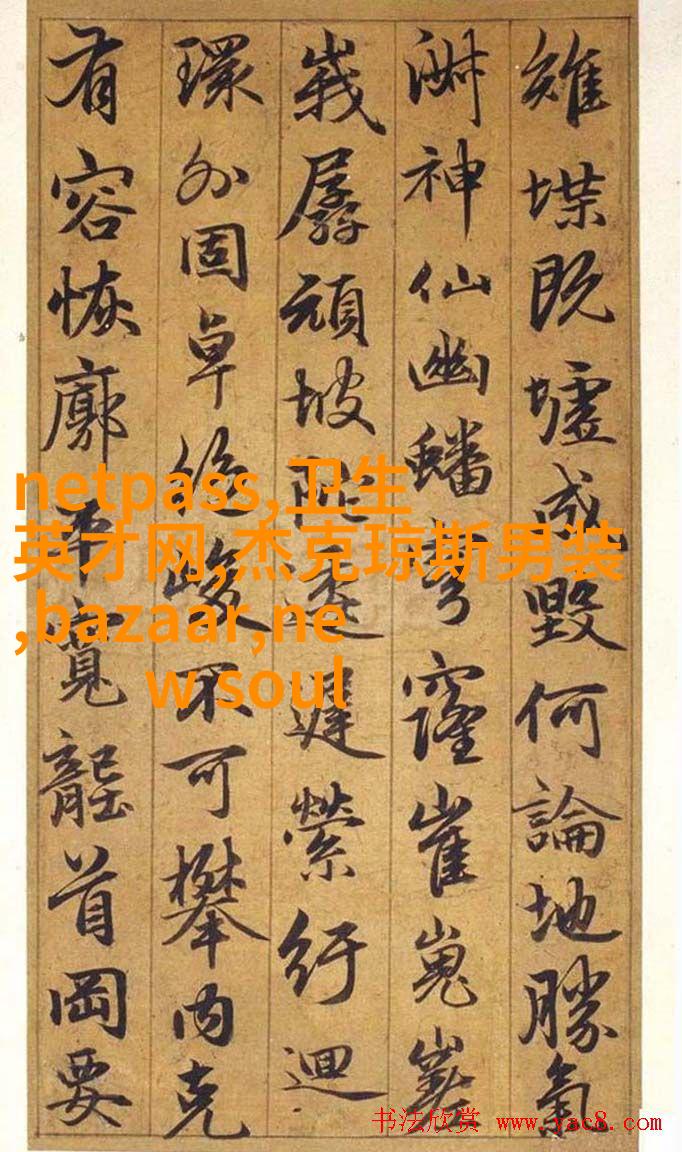 雉堞既墟成毀何論地勝氣
神仙幽蟠穹窿崔嵬嵳
峩孱頑坡陀逶遲縈紆迴
環外固卓絶峻不可攀内克
有容恢廓平寬龍首岡要
netpass,卫生
英才网,杰克琼斯男装
,bazaar,ne
w soul
书法欣赏 www.yac8.com